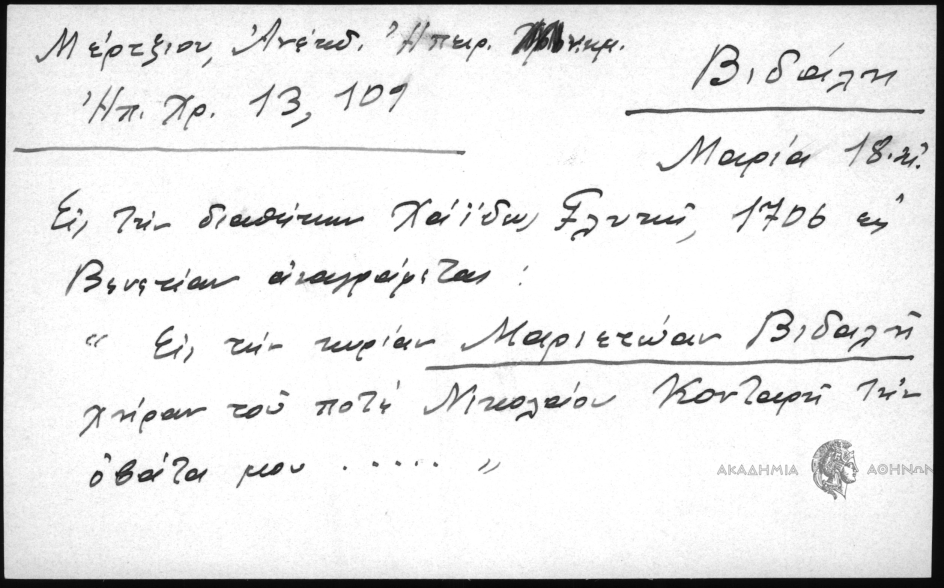 Μέρτζιου, Ἀνέκδ. Ἠπειρ. Μνημ.
Ἠπ. Χρ. 13, 109
Βιδάλη
Μαρία 18.
Εἰς τὴν διαθήκην Χάϊδως Γλυκῆ, 1706 ἐν
Βενετίᾳ ἀναγράφεται :
“ Εἰς τὴν κυρίαν Μαριετώαν Βιδαλῆ
χήραν τοῦ ποτὲ Νικολάου Κονταρῆ τὴν
ὀβάτα μου ..... ”
ΑΚΑΔΗΜΙΑ ΑΘΗΝΩΝ